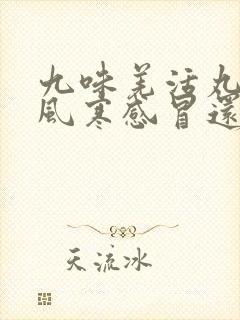 九味羌活丸
風寒感冒還
天流冰